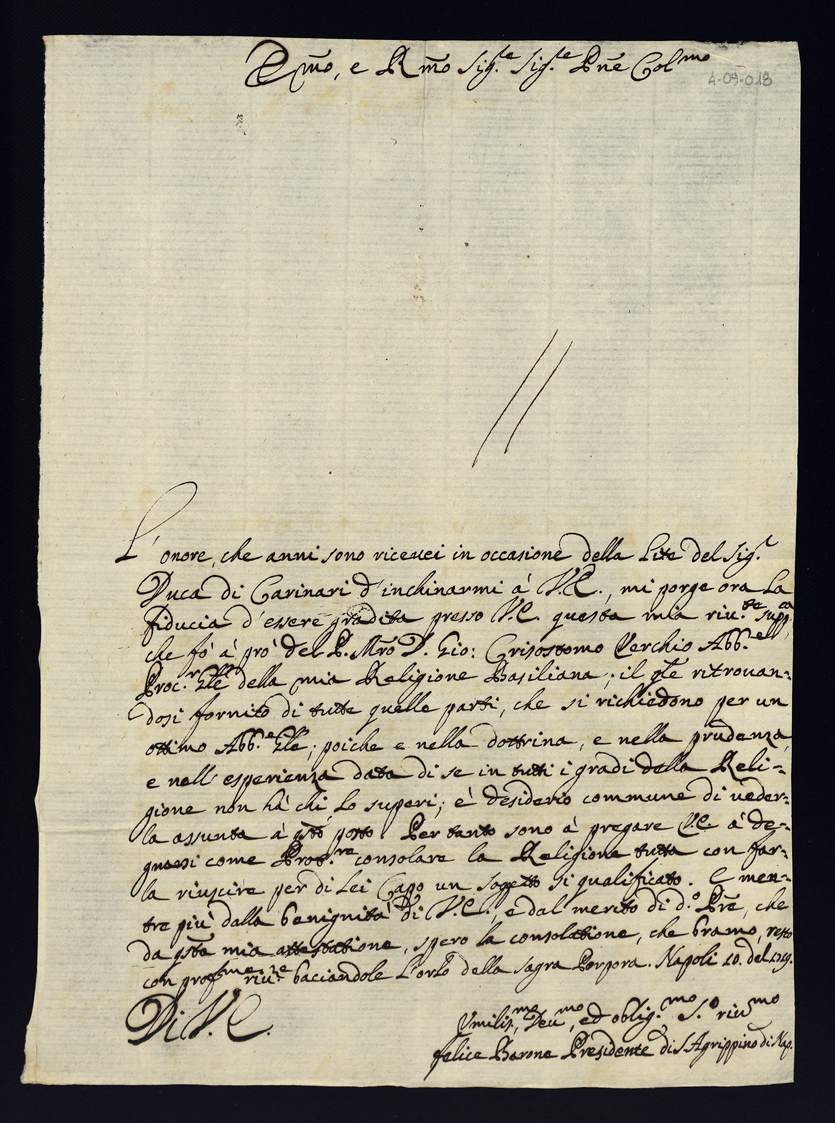 Emo, e Rmo Sig.re Sig.re Pne Colmo
4-03-018
L'onore, che anni sono ricevei in occasione della Lite del Sig.r
Duca di Carinari d'inchinarmi à V.E., mi porge ora la
fiducia d'essere gradita presso V.E. questa mia riv.te supp.ca
che fò à prò del P. Mro D. Gio: Crisostomo Verchio Abb.e
Proc.r Gle della mia Religione Basiliana; il qle ritrovan-
dosi fornito di tutte quelle parti, che si richiedono per un
ottimo Abb.e Gle; poiche e nella dottrina, e nella prudenza,
e nell'esperienza data di se in tutti i gradi della Reli-
gione non hà chi Lo superi; è desiderio commune di veder-
la assunta à qto posto. Per tanto sono à pregare V.E. à de-
gnarsi come Prot.re consolare la Religione tutta con far-
la riuscire per di Lei Capo un sogetto si qualificato. E men-
tre più dalla benignità di V.E., e dal merito di d.o Pre, che
da qsta mia attestatione, spero la consolatione, che bramo, resto
con prof.mo riv.te baciandole l'orlo della sagra Porpora. Napoli 20. del 1729.
Di V.E.
Umiliss.mo, Dev.mo, ed oblig.mo S.o riv.mo
Felice Barone Presidente di S. Agrippino di Nap.